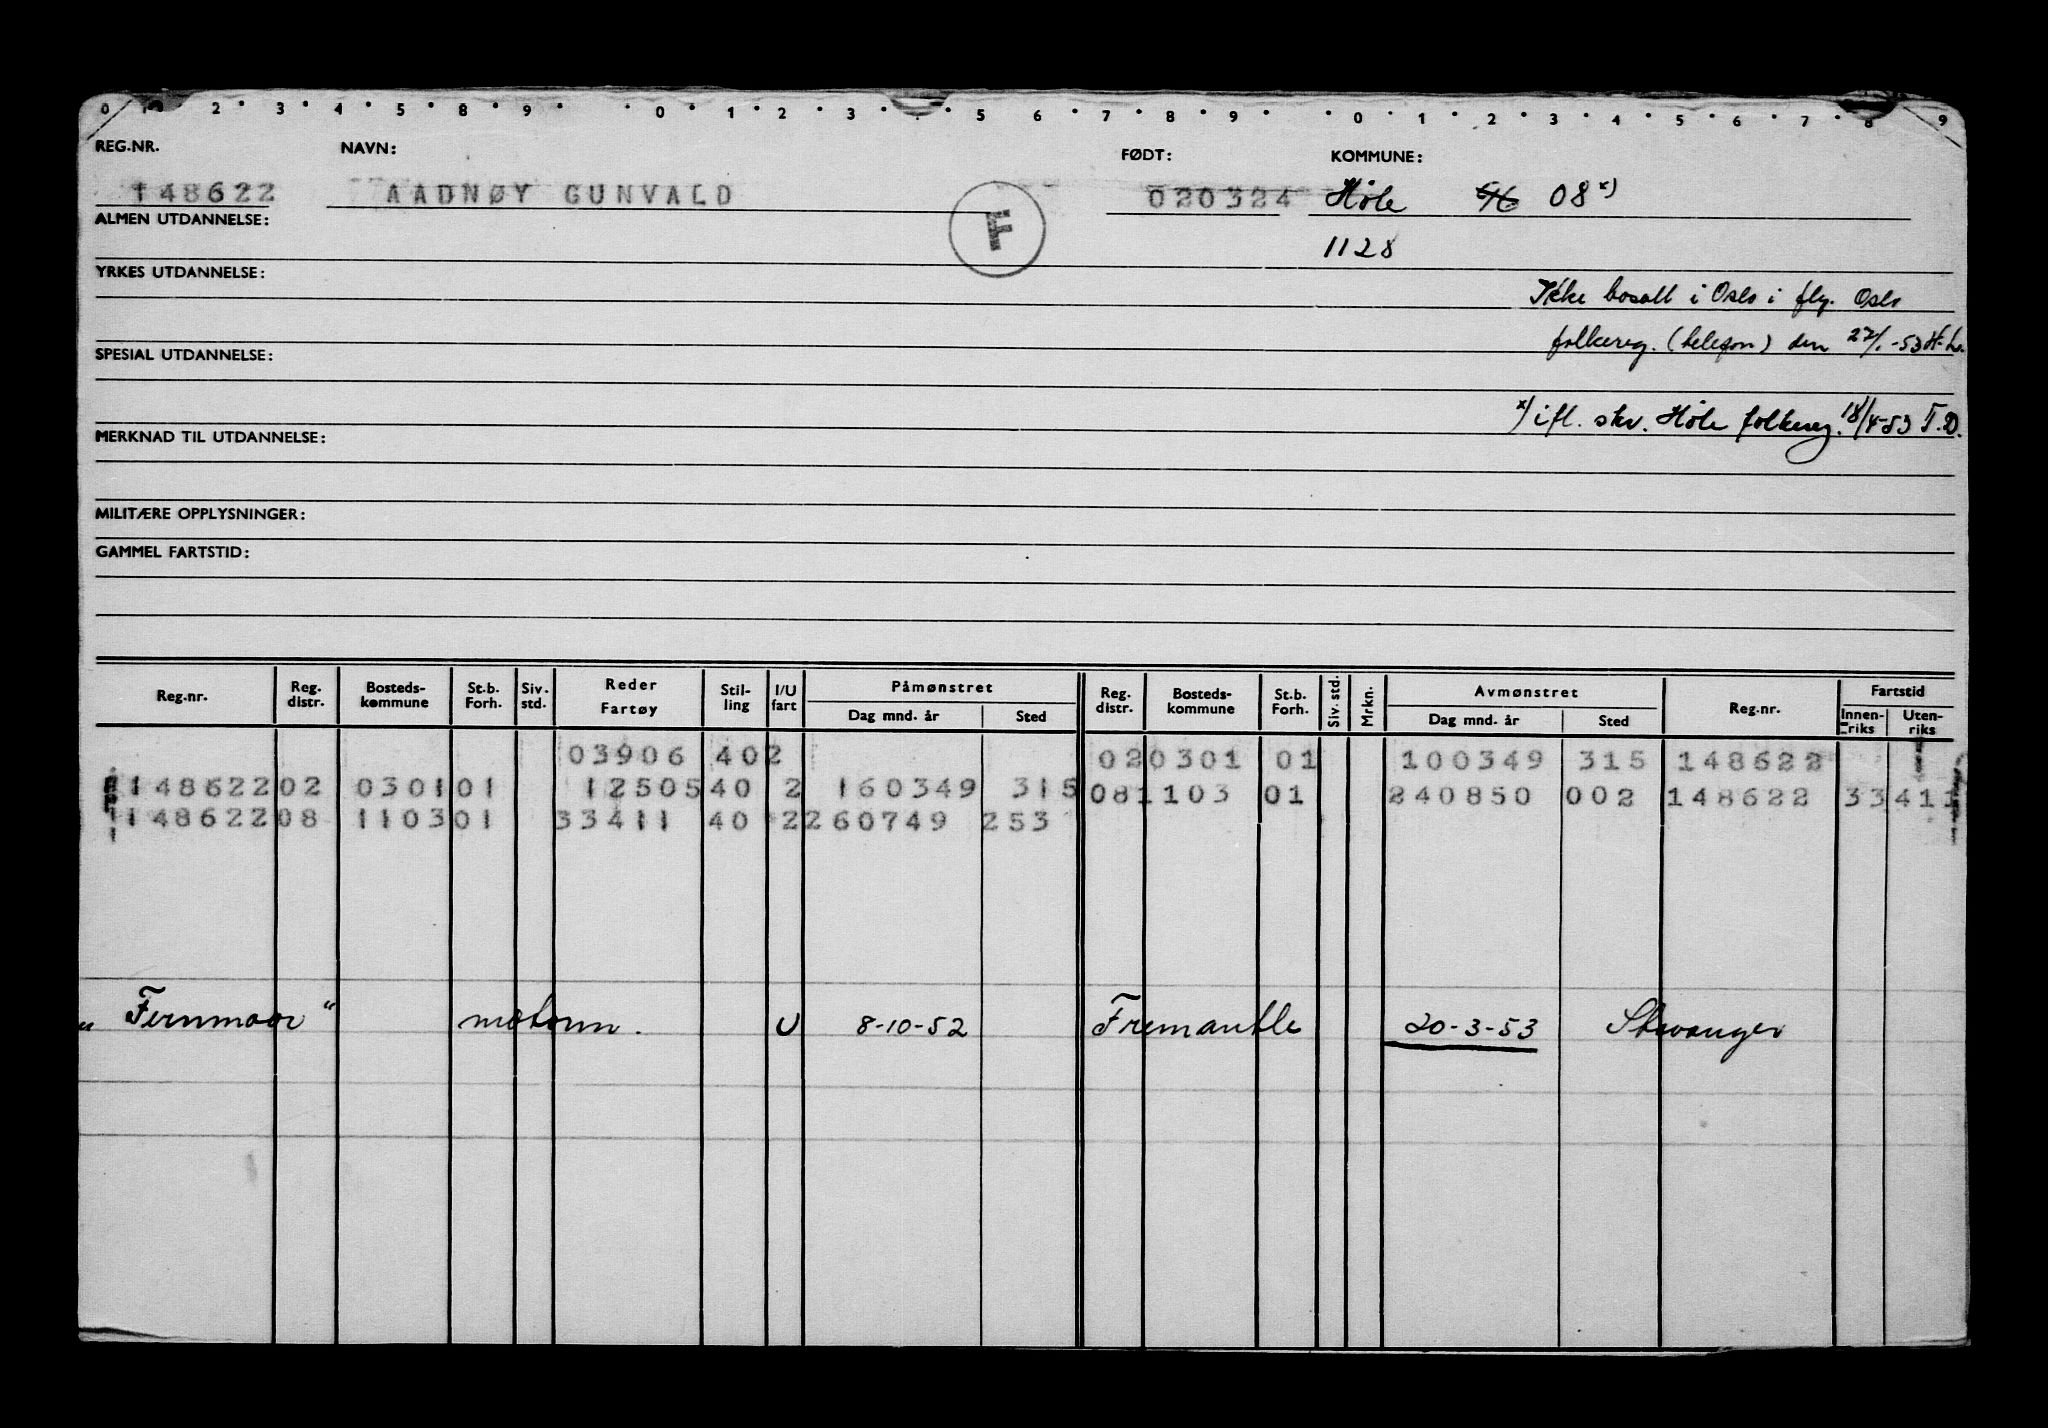 0 1 2 3 4 5 8 9 0 1 2 3 4 5 6 7 8 9 0 1 2 3 4 5 6 7 8 9
REG.NR. NAVN: FØDT: KOMMUNE:
148622 AADNØY GUNVALD 020324 Höle 08 x)
F
ALMEN UTDANNELSE:
1128
YRKES UTDANNELSE:
Ikke bosatt i Oslo i flg. Oslo
folkereg. (telefon) den 27/1-53 H.L.
SPESIAL UTDANNELSE:
x) ifl. skv. Höle folkereg. 18/4-53 T.D.
MERKNAD TIL UTDANNELSE:
MILITÆRE OPPLYSNINGER:
GAMMEL FARTSTID:
Reg.nr. Reg. distr. Bosteds-kommune St.b. Forh. Siv. std. Reder Fartøy Stil-ling I/U fart Påmønstret Dag mnd. år Sted Reg. distr. Bosteds-kommune St.b. Forh. Siv. std. Mrkn. Avmønstret Dag mnd. år Sted Reg.nr. Fartstid Innen-riks Uten-riks
03906 402 020301 01 100349 315 148622
148622 02 0301 01 12505 40 2 160349 315 081103 01 240850 002 148622 33411
148622 08 1103 01 33411 40 2 260749 253
"Fernmoor" motorm. U 8-10-52 Fremantle 20-3-53 Stavanger